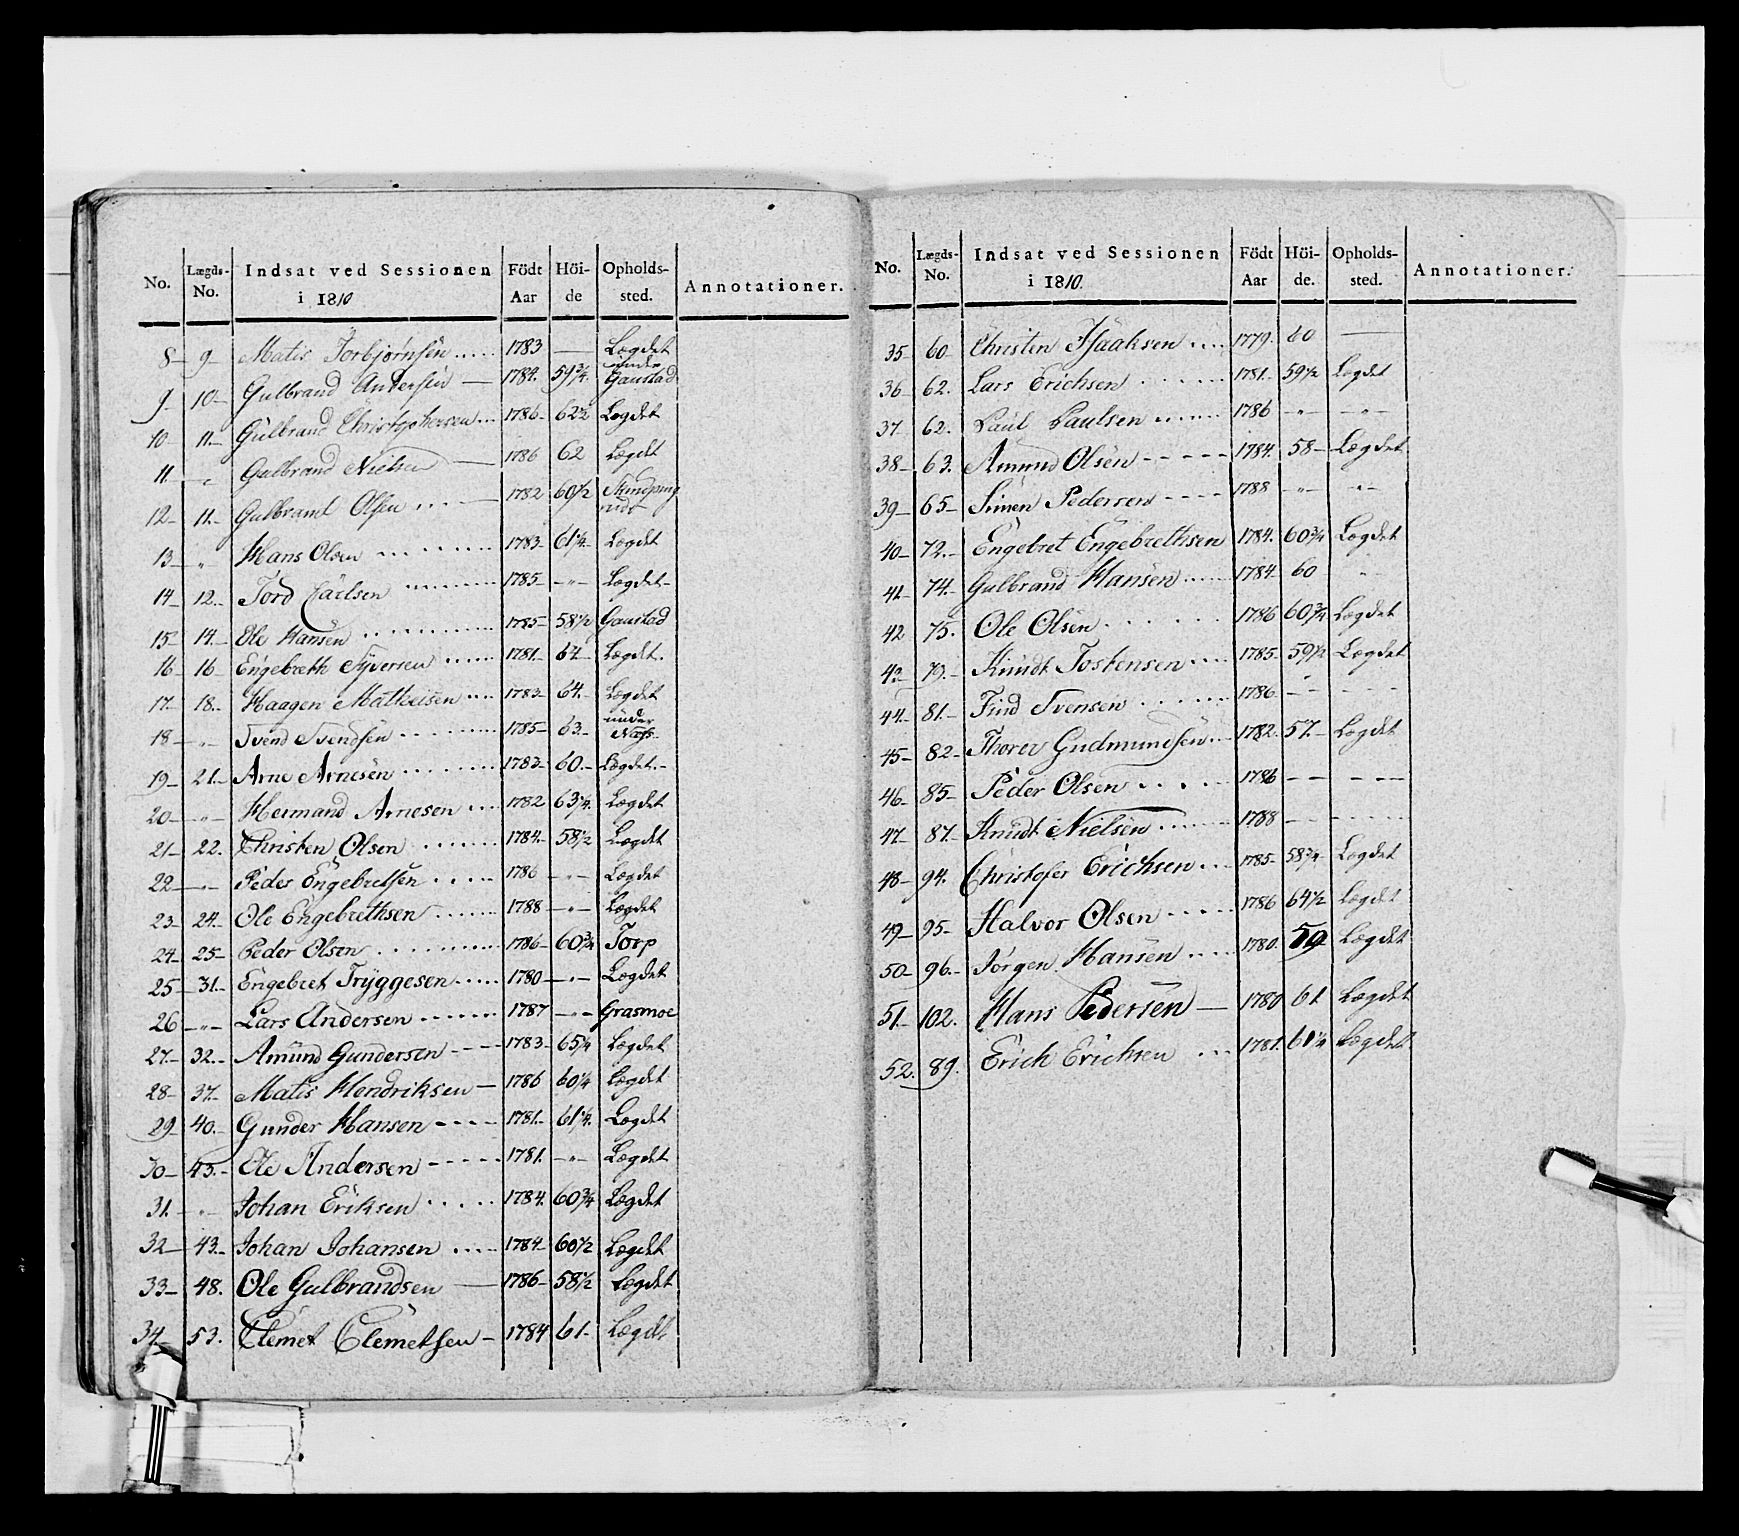 No. Lægds-No. Indsat ved Sessionen i 1810 Födt Aar Höide Opholdssted. Annotationer.
8 9 Matis Torbjørnsen 1783 — Lægdet
9 10 Gulbrand Andersen — 1784. 59 3/4. under Gaustad
10 11 Gulbrand Christophersen 1786 62 1/2 Lægdet
11. " Gulbrand Nielsen — 1786 62 Lægdet
12 11. Gulbrand Olsen 1782 60 1/2
13 " Hans Olsen 1783 61 1/4 Lægdet
14 12. Tord Carlsen 1785 — " — Lægdet
15 14 Ole Hansen 1785 58 1/2 Gaustad
16 16 Engebreth Syversen 1781 64 Lægdet.
17. 18. Haagen Matheisen 1783 64. Lægdet
18 " Svend Svendsen 1785 63. under Næss
19 21. Arne Arnesen 1783 60. Lægdet.
20 " Hermand Arnesen 1782 63 1/4. Lægdet
21 22. Christen Olsen 1784. 58 1/2 Lægdet
22 " Peder Engebretsen 1786 — " — Lægdet
23 24. Ole Engebrethsen 1788 — " — Lægdet
24 25 Peder Olsen 1786 60 3/4 Torp
25 31. Engebret Tryggesen 1780 — " — Lægdet
26 " Lars Andersen 1787 — " — Grasmoe
27. 32. Amund Gundersen 1783 65 1/4 Lægdet
28 37. Matis Hendriksen — 1786 60 1/4 Lægdet
29 40. Gunder Hansen 1781. 61 1/4. Lægdet
30 43. Ole Andersen 1781. — " — Lægdet
31. " Johan Eriksen 1784. 60 3/4 Lægdet
32 43. Johan Johansen 1784 60 1/2 Lægdet
33 48. Ole Gulbrandsen — 1786 58 1/2 Lægdet
34 53. Clemet Clemetsen — 1784 61. Lægdt
No. Lægds-No. Indsat ved Sessionen i 1810. Födt Aar Höide. Opholdssted. Annotationer.
35 60 Christen Isaaksen 1779. 60 —
36 62. Lars Erichsen 1781. 59 1/2 Lægdet
37 62. Paul Paulsen 1786 — " — — " —
38 63. Amund Olsen 1784. 58 Lægdet
39 65 Simen Pedersen 1788 — " — — " —
40 72. Engebret Engebrethsen 1784. 60 3/4 Lægdet
41 74. Gulbrand Hansen 1784 60 "
42 75. Ole Olsen 1786 60 3/4 Lægdet
43 79. Knudt Tostensen 1785 59 1/2 Lægdet
44. 81. Find Svensen 1786. — — — — —
45 82 Thorer Gudmundsen 1782. 57. Lægdet
46 85 Peder Olsen 1786 — — — — —
47. 87. Knudt Nielsen 1788 — — — — —
48 94. Christofer Erichsen 1785 58 3/4 Lægdet
49 95 Halvor Olsen 1786 64 1/2 Lægdet
50 96. Jørgen Hansen 1780. 59 Lægdet
51. 102. Hans Pedersen — 1780 61 Lægdet
52. 89. Erich Erichsen 1781. 61 1/4 Lægdet